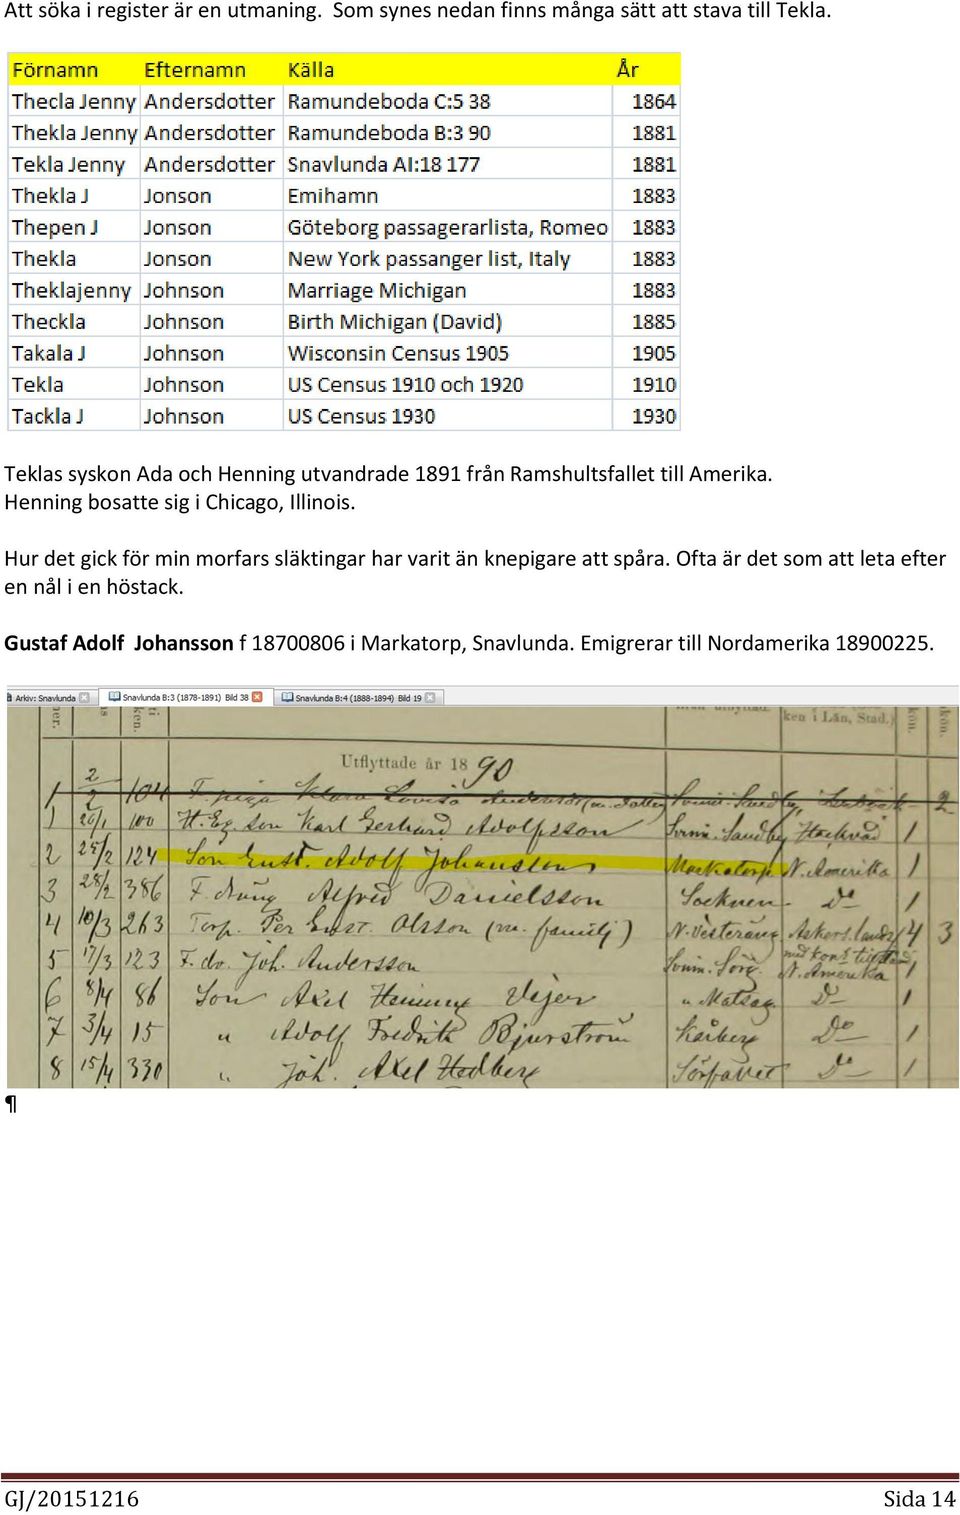 Att söka i register är en utmaning. Som synes nedan finns många sätt att stava till Tekla.
Förnamn Efternamn Källa År
Thecla Jenny Andersdotter Ramundeboda C:5 38 1864
Thekla Jenny Andersdotter Ramundeboda B:3 90 1881
Tekla Jenny Andersdotter Snavlunda AI:18 177 1881
Thekla J Jonson Emihamn 1883
Thepen J Jonson Göteborg passagerarlista, Romeo 1883
Thekla Jonson New York passanger list, Italy 1883
Theklajenny Johnson Marriage Michigan 1883
Theckla Johnson Birth Michigan (David) 1885
Takala J Johnson Wisconsin Census 1905 1905
Tekla Johnson US Census 1910 och 1920 1910
Tackla J Johnson US Census 1930 1930
Teklas syskon Ada och Henning utvandrade 1891 från Ramshultsfallet till Amerika.
Henning bosatte sig i Chicago, Illinois.
Hur det gick för min morfars släktingar har varit än knepigare att spåra. Ofta är det som att leta efter
en nål i en höstack.
Gustaf Adolf Johansson f 18700806 i Markatorp, Snavlunda. Emigrerar till Nordamerika 18900225.
Arkiv: Snavlunda Snavlunda B:3 (1878-1891) Bild 38 Snavlunda B:4 (1888-1894) Bild 19
ken i Län, Stad.)
Utflyttade år 1890
1 2/2 104 F. piga Klara Lovisa 2
1 20/1 100 H. Eg. son Karl Gerhard Adolfsson Somm. Sandby, Hackvad 1
2 25/2 124 Son Gust. Adolf Johansson Markatorp. N. Amerika 1
3 28/2 386 F. dräng Alfred Danielsson Socknen Do 1
4 10/3 263 Torp. Per Gust. Olsson (m. familj) N. Vesteräng. Askers. landsf 4 3
5 17/3 123 F. do. Joh. Andersson N. Amerika 1
6 8/4 86 Son Axel Do 1
7 3/4 15 " Adolf Fredrik Bjurström Kårberg Do 1
8 15/4 330 " Joh. Axel Hedberg Sörfallet Do 1
¶
GJ/20151216 Sida 14